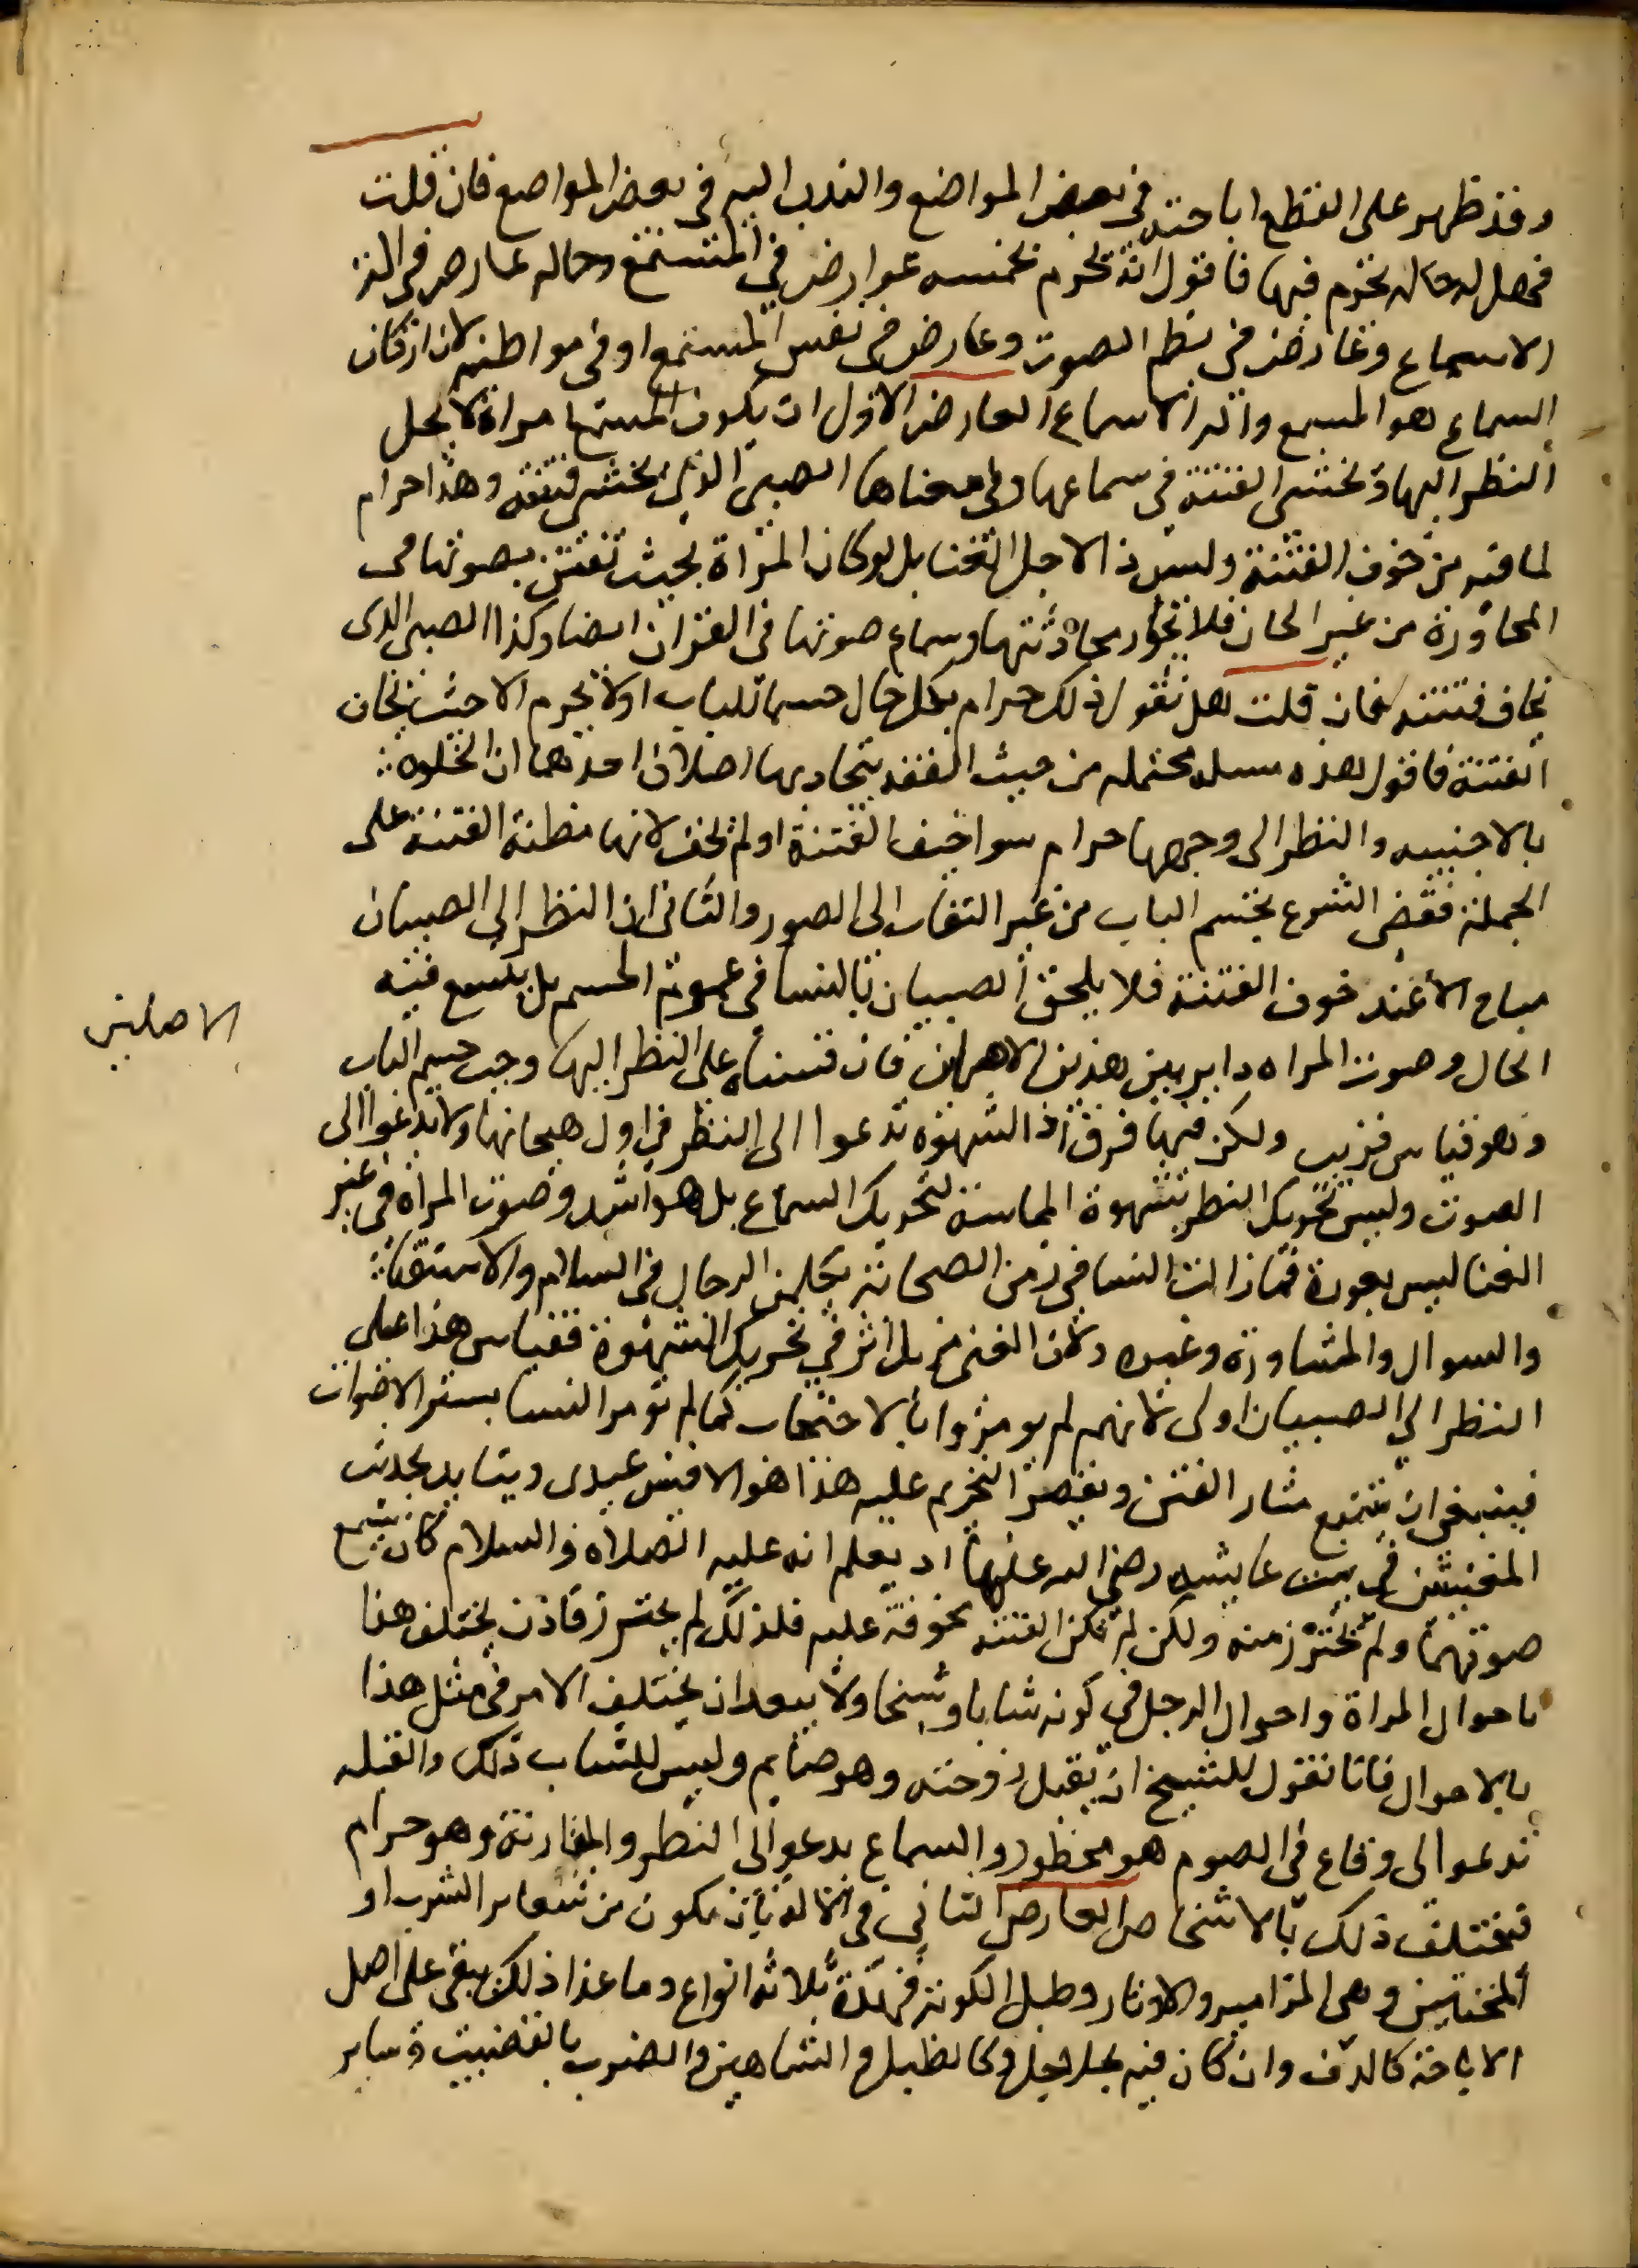 وقد ظهر على القطع اباحته في بعض المواضع والندب اليه في بعض المواضع فان قلت
فهل له حاله يحرم فيها فاقول انه يحرم بخمسه عوارض في المستمع وحاله عارض في الة
الاسماع وعارض في نظم الصوت وعارض في نفس المستمع او في مواظبته لان اركان
السماع هو المسمع والة الاسماع العارض الاول ان يكون المسمع امراة لا يحل
النظر اليها وتخشى الفتنة في سماعها وفي معناها الصبى الذي يخشى فتنته وهذا حرام
لما فيه من خوف الفتنة وليس ذا لاجل الغنا بل لو كان المراة بحيث تفتتن بصوتها في
المحاورة من غير الحان فلا تجوز محادثتها وسماع صوتها في القران ايضا وكذا الصبى الذى
يخاف فتنته فان قلت هل تقول ذلك حرام بكل حال حسما للباب اولا يحرم الا حيث يخاف
الفتنة فاقول هذه مسله محتمله من حيث الفقه يتجاذبها اصلان احدهما ان الخلوه
بالاجنبيه والنظر الى وجهها حرام سوا خيف الفتنة او لم تخف لانها مظنة الفتنة على
الجملة فقضى الشرع بحسم الباب من غير التفات الى الصور والثانى ان النظر الى الصبيان
مباح الا عند خوف الفتنة فلا يلحق الصبيان بالنسا في عموم الحسم بل يتبع فيه
الحال وصوت المراه داير بين هذين الاهلين فان قسناه على النظر اليها وجب حسم الباب
الاصلين
وهو قياس قريب ولكن فيها فرق اذ الشهوة تدعوا الى النظر في اول هيجانها ولا تدعوا الى
الصوت وليس تحريك النظر بشهوة المماسة لتحريك السماع بل هو اشد وصوت المراه في غير
الغنا ليس بعورة فما زالت النسا في زمن الصحابة يكلمن الرجال في السلام والاستفتا
والسوال والمشاورة وغيره ولان الغنى مزيد اثر في تحريك الشهوة فقياس هذا على
النظر الى الصبيان اولى لانهم لم يومروا بالاحتجاب كما لم تومر النسا بستر الاصوات
فينبغى ان يتبع مثار الفتن ويقصر التحريم عليه هذا هو الاقيس عندى ويتايد بحديث
المغنيتين في بيت عايشه رضي الله عنها اذ يعلم انه عليه الصلاه والسلام كان يسمع
صوتهما ولم يحترز منه ولكن لم تكن الفتنه مخوفة عليه فلذلك لم يحترز فاذن يختلف هذا
باحوال المراة واحوال الرجل في كونه شابا وشيخا ولا يبعد ان يختلف الامر في مثل هذا
بالاحوال فانا نقول للشيخ ان يقبل زوجته وهو صايم وليس للشاب ذلك والقبله
تدعوا الى وقاع في الصوم هو محظور والسماع يدعو الى النظر والمقاربة وهو حرام
فيختلف ذلك بالاشخاص العارض الثاني في الالة بان يكون من شعاير الشرب او
المخنثين وهى المزامير والاوتار وطبل الكوبة فهذه ثلاثة انواع وما عدا ذلك يبقى على اصل
الاباحة كالدف وان كان فيه جلاجل وكالطبل والشاهين والضرب بالقضيب وساير